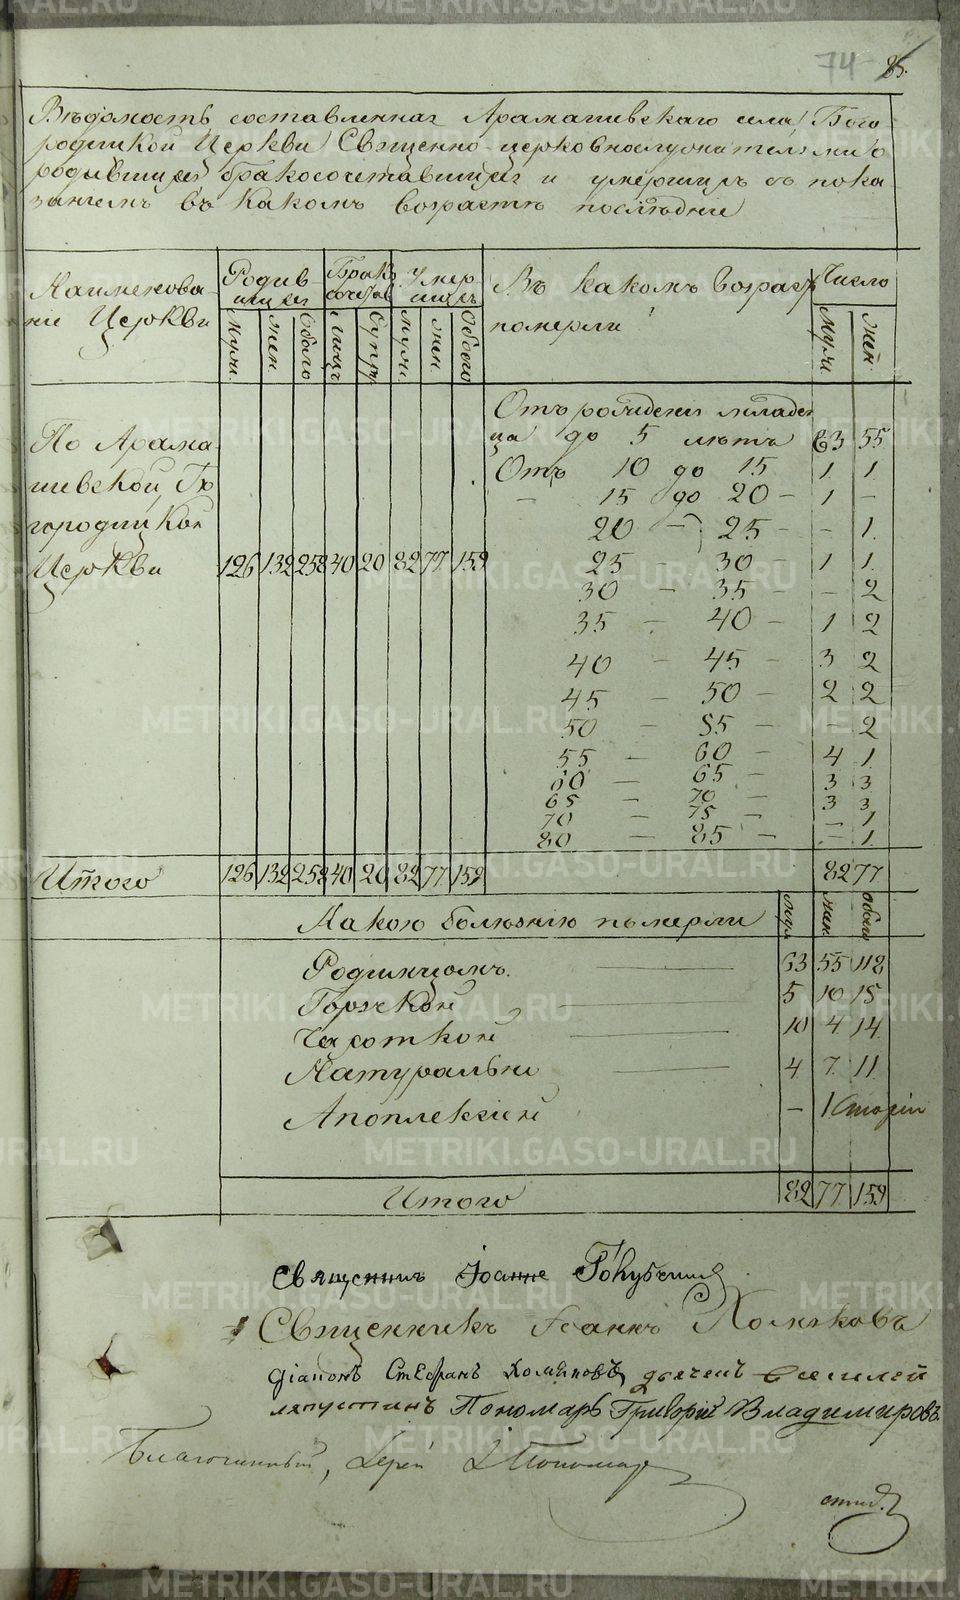 74 85.
Вѣдомость составленная Арамашевскаго села Бого
родицкой Церкви Священно-церковнослужителями о
родившихся бракосочетавшихся и умершихъ съ пока
заніемъ въ какомъ возрастѣ послѣдніе
Наименова- Родив- Брако У мер- Въ какомъ возрастѣ Число
ніе Церкви шихся сочетав шихъ померли
Муж. жен Обоего лицъ Супру Муж. жен Обоего Муж. жен
Отъ рожденія младен
По Арама- ца до 5 лѣтъ 63 55
шевской Бо Отъ 10 до 15 1 1
— 15 до 20 — 1 —
городицкой 20 — 25 — — 1
Церкви 126 132 258 40 20 82 77 159 25 — 30 — 1 1
30 — 35 — — 2
35 — 40 — 1 2
40 — 45 — 3 2
45 — 50 — 2 2
50 — 55 — — 2
55 — 60 — 4 1
60 — 65 — 3 3
65 — 70 — 3 3
70 — 75 — — 1
80 — 85 — — 1
Итого 126 132 258 40 20 82 77 159 82 77
Какою болѣзнію померли муж жен обоего
Родимцомъ. 63 55 118
Горячкой 5 10 15
Чахоткой 10 4 14
Натурально 4 7 11
Апоплексіей — 1
Итого 82 77 159
Священникъ Іоаннъ
Священникъ Іоаннъ Хомяковъ
діаконъ Стефанъ дьячекъ
Пономарь Григорій Владимировъ.
Благочинный, Іерей